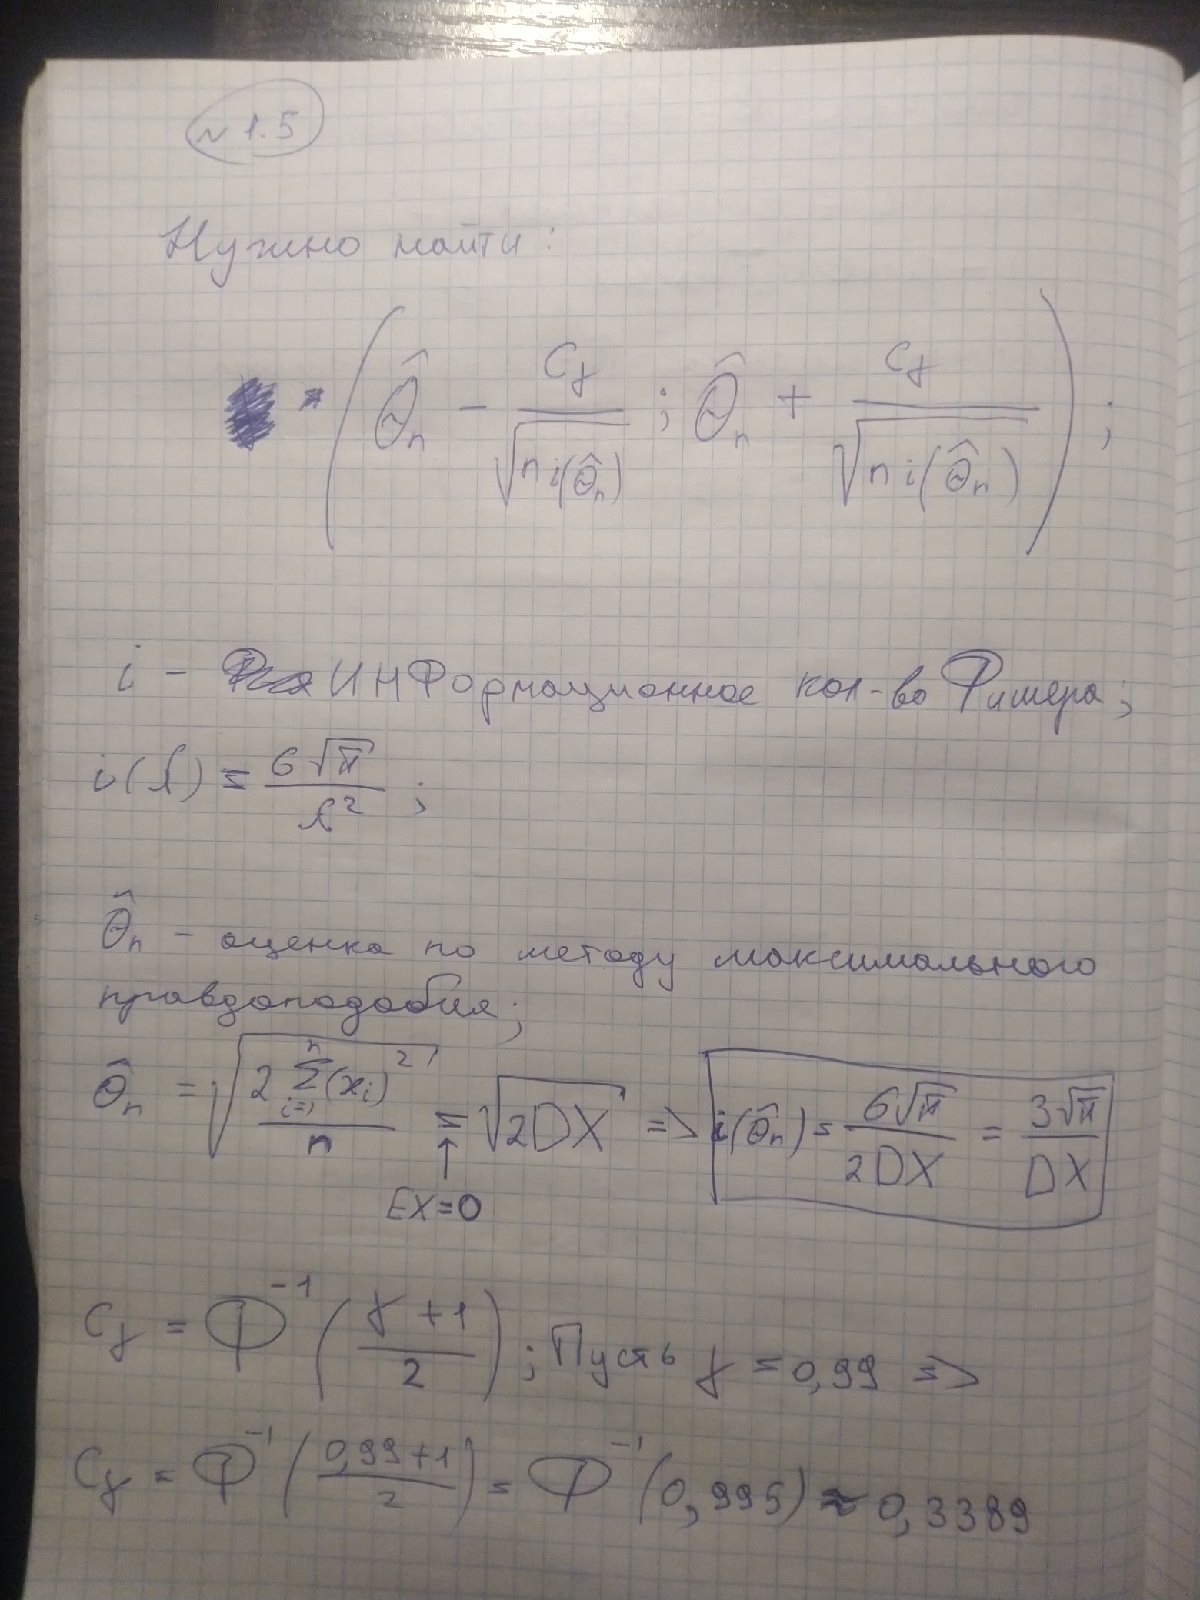 № 1.5
Нужно найти:
( θ̂ₙ − Cγ / √(n i(θ̂ₙ)) ; θ̂ₙ + Cγ / √(n i(θ̂ₙ)) ) ;
i - информационное кол-во Фишера;
i(λ) = 6√π / λ² ;
θ̂ₙ - оценка по методу максимального
правдоподобия;
θ̂ₙ = √(2 Σᵢ₌₁ⁿ (xᵢ)² / n) = √(2DX) => i(θ̂ₙ) = 6√π / 2DX = 3√π / DX
↑
EX=0
Cγ = Φ⁻¹ ( (γ + 1) / 2 ) ; Пусть γ = 0,99 =>
Cγ = Φ⁻¹ ( (0,99+1) / 2 ) = Φ⁻¹ (0,995) ≈ 0,3389